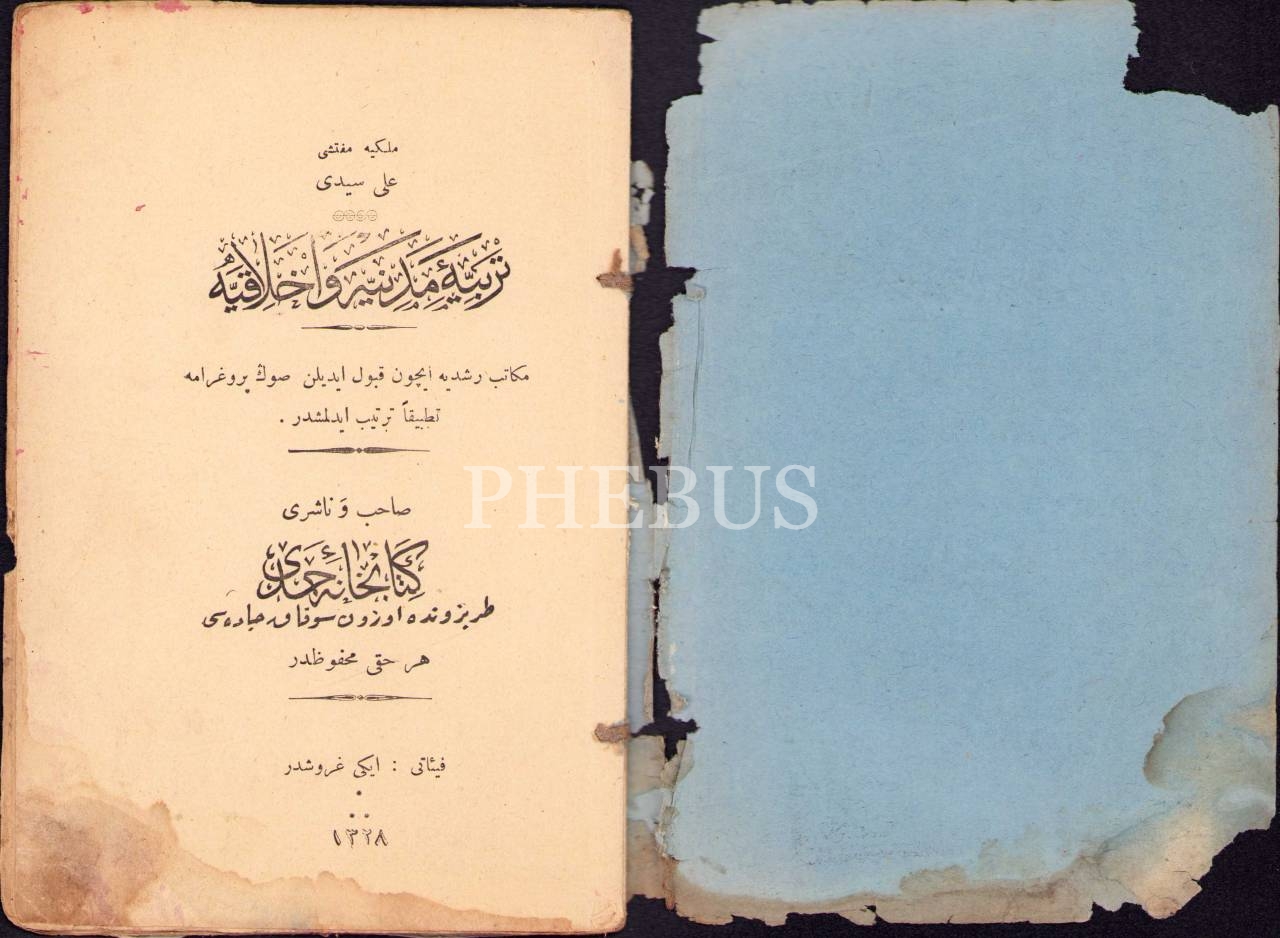 ملكيه مفتشى
على سيدى
تَربيَّهٔ مَدَنيّه وَ اَخْلاقيَّه
مكاتب رشديه ايچون قبول ايديلن صوڭ پروغرامه
تطبيقاً ترتيب ايدلمشدر .
صاحب وَ ناشرى
كتابخانهٔ حمدى
طربزونده اوزون سوقاق جاده سى
هر حقى محفوظدر
فيئاتى : ايكى غروشدر
١٣٢٨
PHEBUS